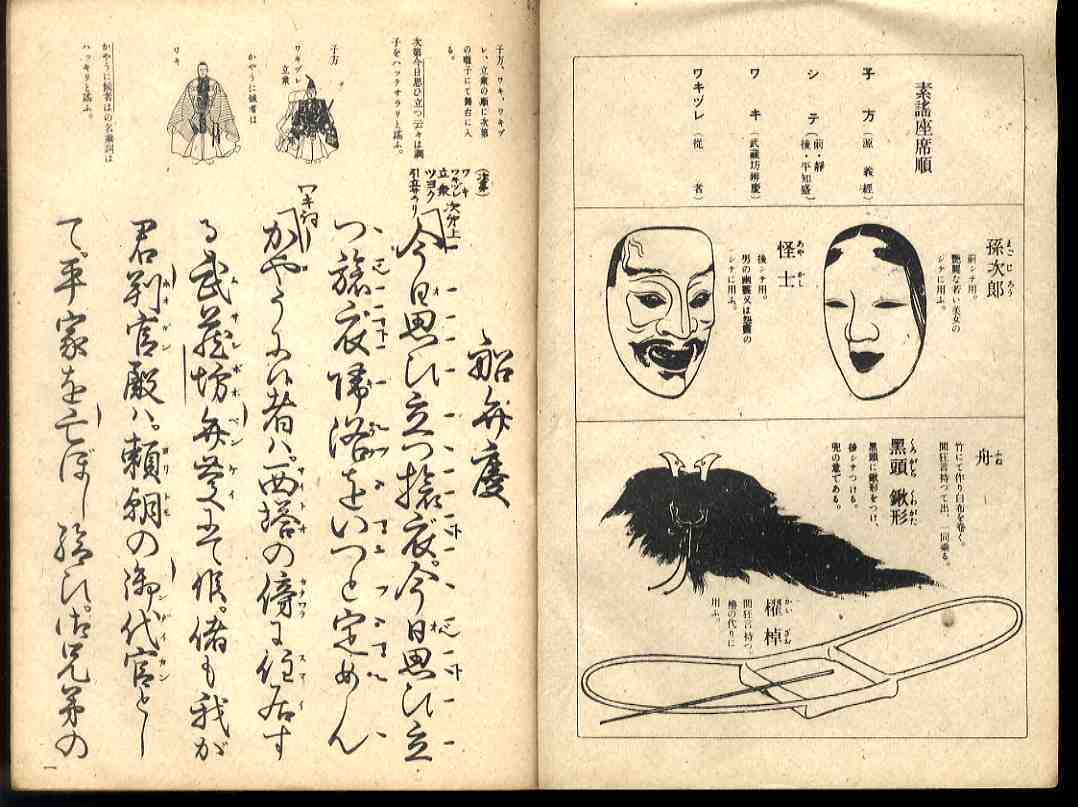 素謠座席順
子方(源義經)
シテ(前・靜
後・平知盛)
ワキ(武藏坊辨慶)
ワキヅレ(從者)
孫次郎
まごじろう
前シテ用。
艷麗な若い美女の
シテに用ふ。
怪士
あやかし
後シテ用。
男の幽靈又は怨靈の
シテに用ふ。
舟
ふね
竹にて作り白布を卷く。
間狂言持つて出、一同乘る。
黑頭 鍬形
くろがしら くわがた
黑頭に鍬形をつけ、
後シテつける。
兜の意である。
櫂棹
かいざお
間狂言持つ。
櫓の代りに
用ふ。
子方、ワキ、ワキヅ
レ、立衆の順に次第
の囃子にて舞台に入
る。
次第今日思ひ立つ云々は調
子をハッテサラリと謠ふ。
子方
ワキヅレ
立衆
かやうに候者は
ワキ
かやうに候者はの名乘詞は
ハッキリと謠ふ。
船弁慶
(次第)
ワキ
ワキヅレ
立衆
ツヨク
次第上
今日思ひ立つ旅衣。今日思ひ立
つ旅衣帰洛をいつと定めん
ワキ詞
かやうに候者ハ。西塔の傍に住居す
る武蔵坊弁慶にて候。偖も我が
君判官殿ハ。頼朝の御代官とし
て。平家を亡ぼし給ひ。御兄弟の
一